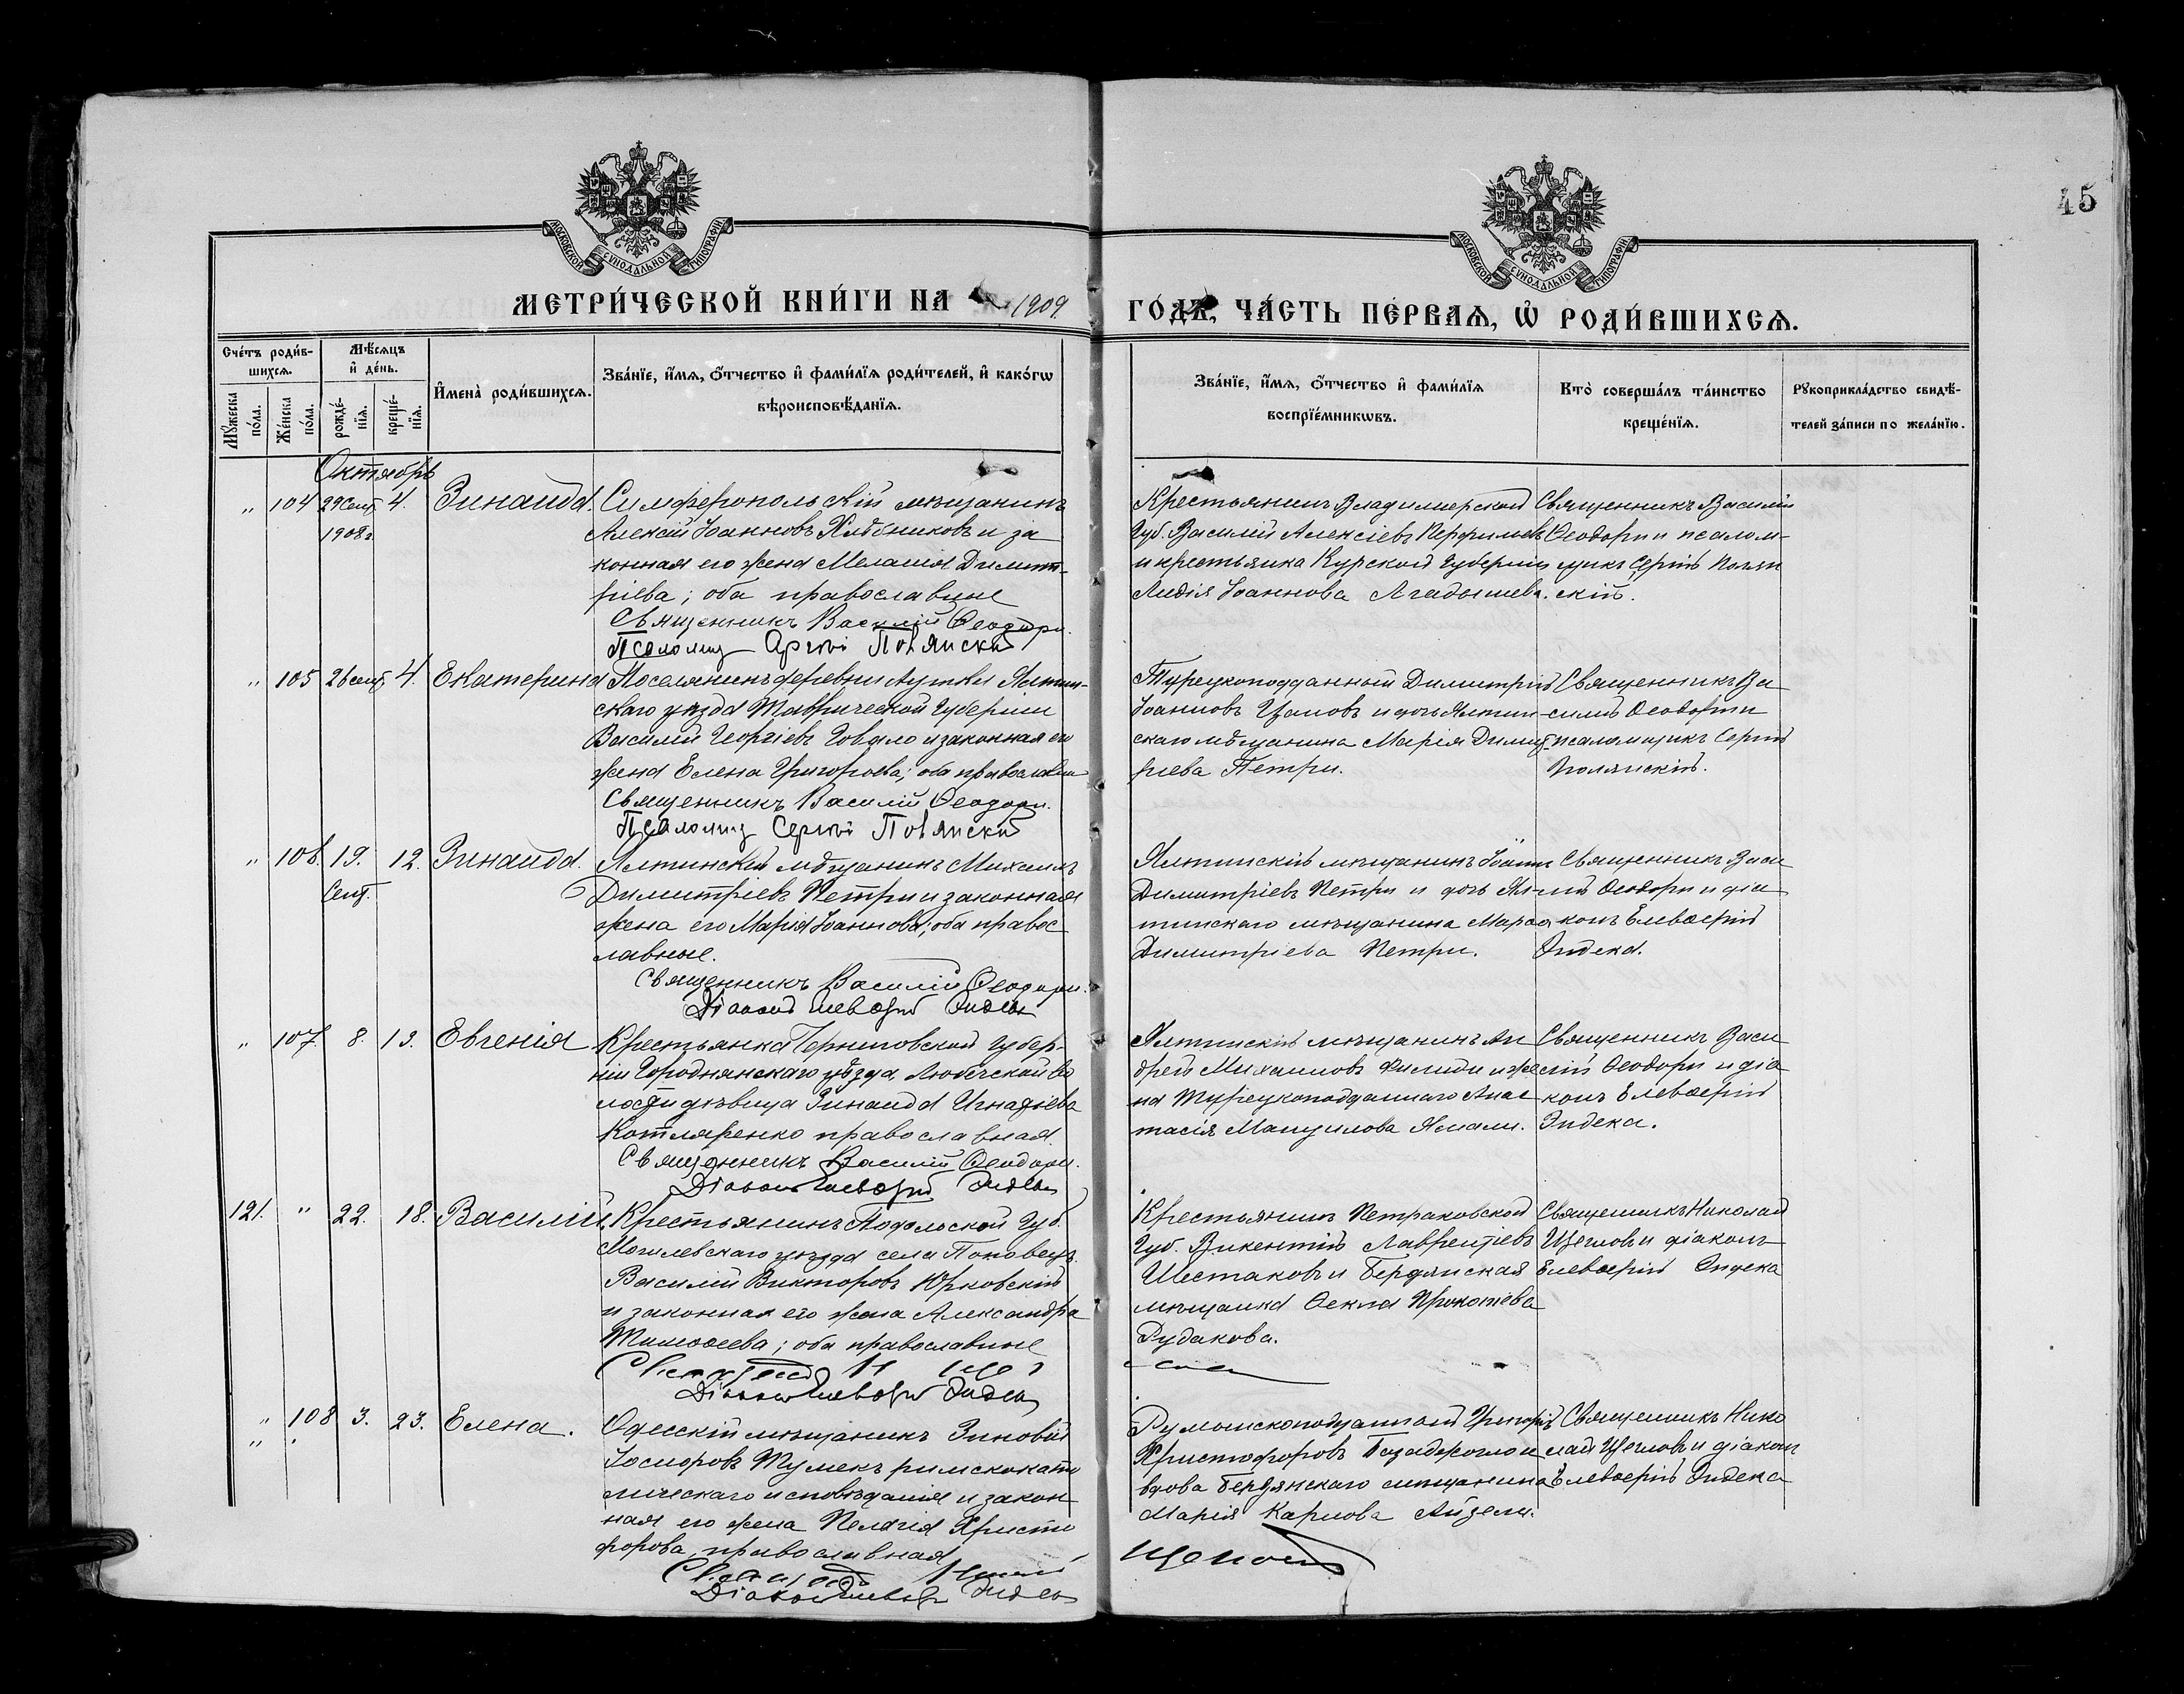 45
МОСКОВСКОЙ СѴНОДАЛЬНОЙ ТИПОГРАФІИ
МОСКОВСКОЙ СѴНОДАЛЬНОЙ ТИПОГРАФІИ
МЕТРИ́ЧЕСКОЙ КНИ́ГИ НА 1909
ГО́ДЪ, ЧА́СТЬ ПЕ́РВАѦ, Ѡ҆ РОДИ́ВШИХСѦ.
Сче́тъ роди́в-
шихсѧ.
Мꙋ́жеска по́ла.
Же́нска по́ла.
Мѣ́сѧцъ
и҆ де́нь.
рожде́-
нїѧ.
креще́-
нїѧ.
И҆мена̀ роди́вшихсѧ.
Зва́нїе, и҆́мѧ, ѻ҆́тчество и҆ фами́лїѧ роди́телей, и҆ како́гѡ
вѣроисповѣ́данїѧ.
Зва́нїе, и҆́мѧ, ѻ҆́тчество и҆ фами́лїѧ
воспрїе́мникѡвъ.
Кто̀ соверша́лъ та́инство
креще́нїѧ.
Рꙋкоприкла́дство свидѣ́-
телей за́писи по жела́нїю.
Октябрь
" 104 29 Сент. 4. Зинаида.
1908 г.
Симферопольскій мѣщанинъ
Алексій Іоанновъ Хлѣбниковъ и за
конная его жена Меланія Димит-
ріева; оба православные
Священникъ Василій Ѳеодори.
Псаломщ Сергій Полянскій
Крестьянинъ Владимирской
Губ. Василій Алексіевъ Перфильевъ
и крестьянка Курской Губерніи
Лидія Іоаннова
Священникъ Василій
Ѳеодори и псалом-
щикъ Сергій Полян
скій.
" 105 26 сент. 4. Екатерина
Поселянинъ деревни Аутки Ялтин-
скаго уѣзда Таврической Губерніи
Василій Георгіевъ Говало и законная его
жена Елена Григорьева; оба православные
Священникъ Василій Ѳеодори.
Псаломщ Сергій Полянскій
Турецкоподданный Димитрій
Іоанновъ Цановъ и дочь Ялтин-
скаго мѣщанина Марія Димит-
ріева Петри.
Священникъ Ва
силій Ѳеодори и
псаломщикъ Сергій
Полянскій.
" 106 19. 12. Зинаида
Сент.
Ялтинскій мѣщанинъ Михаилъ
Димитріевъ Петри и законная
жена его Марія Іоаннова; оба правос
лавные.
Священникъ Василій Ѳеодори.
Діаконъ Елевѳерій Эндека
Ялтинскій мѣщанинъ Іоаннъ
Димитріевъ Петри и дочь Ял-
тинскаго мѣщанина Марѳа
Димитріева Петри.
Священникъ Васи
лій Ѳеодори и діа
конъ Елевѳерій
Эндека.
" 107. 8. 13. Евгенія
Крестьянка Черниговской Губер-
ніи Городнянскаго уѣзда, Любечской во
лости дѣвица Зинаида Игнатіева
Котляренко православная.
Священникъ Василій Ѳеодори.
Діаконъ Елевѳерій Эндека
Ялтинскій мѣщанинъ Ан
дрей Михаиловъ Филиди и же
на Турецкоподданнаго Анас
тасія Мануилова Ямали.
Священникъ Васи
лій Ѳеодори и діа
конъ Елевѳерій
Эндека.
121. " 22. 18. Василій.
Крестьянинъ Подольской Губ.
Могилевскаго уѣзда села Поповецъ
Василій Викторовъ Юрковскій
и законная его жена Александра
Тимоѳеева; оба православные
Діаконъ Елевѳерій Эндека
Крестьянинъ Петраковской
Губ. Викентій Лаврентіевъ
Шестаковъ и Бердянская
мѣщанка Ѳекла Прокопіева
Рудакова.
Священникъ Николай
Щегловъ и діаконъ
Елевѳерій Эндека
" 108 3. 23. Елена.
Одесскій мѣщанинъ Зиновій
Іосифовъ Тумекъ римскокато
лическаго исповѣданія и закон
ная его жена Пелагія Христо
форова, православная
Діаконъ Елевѳерій Эндека
Румынскоподданный Григорій
Христофоровъ Базаджогло и
вдова Бердянскаго мѣщанина
Марія Карпова Айзели.
Священникъ Нико
лай Щегловъ и діаконъ
Елевѳерій Эндека